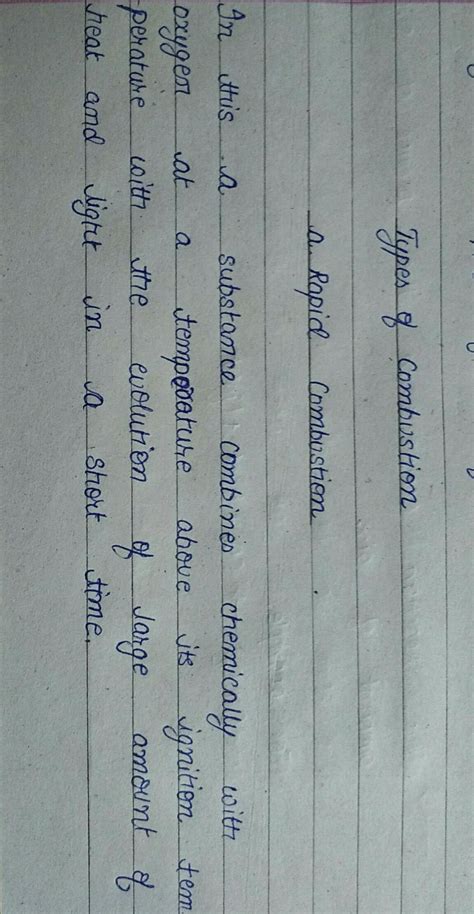 Types of Combustion
a. Rapid Combustion
In this a substance combines chemically with
oxygen at a temperature above its ignition tem
perature with the evolution of large amount of
heat and light in a short time.